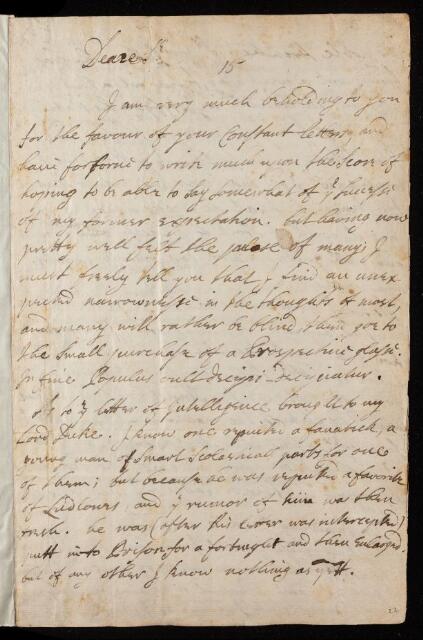 Deare Sr
15
I am very much beholding to you
for the favour of your Constant letters and
have forborne to write much upon the score of
hoping to be able to say somewhat of ye successe
of my former expectation. but having now
pretty well felt the pulse of many; I
must freely tell you that I find an unex
pected narrownesse in the thoughts of most,
and many will rather be blind then goe to
the small purchase of a Prospective glasse.
In fine Populus vult decipi decipiatur.
As to ye letter of intelligence brought to my
Lord Duke. I know one repute a fanatick, a
young man of smart parts for one
of them; but because he was reputed a favorite
of Ludlowes and ye rumor of him was then
fresh. he was (after this letter was intercepted)
putt into Prison for a fortnight and then Enlarged.
but of any other I know nothing as yett.
22